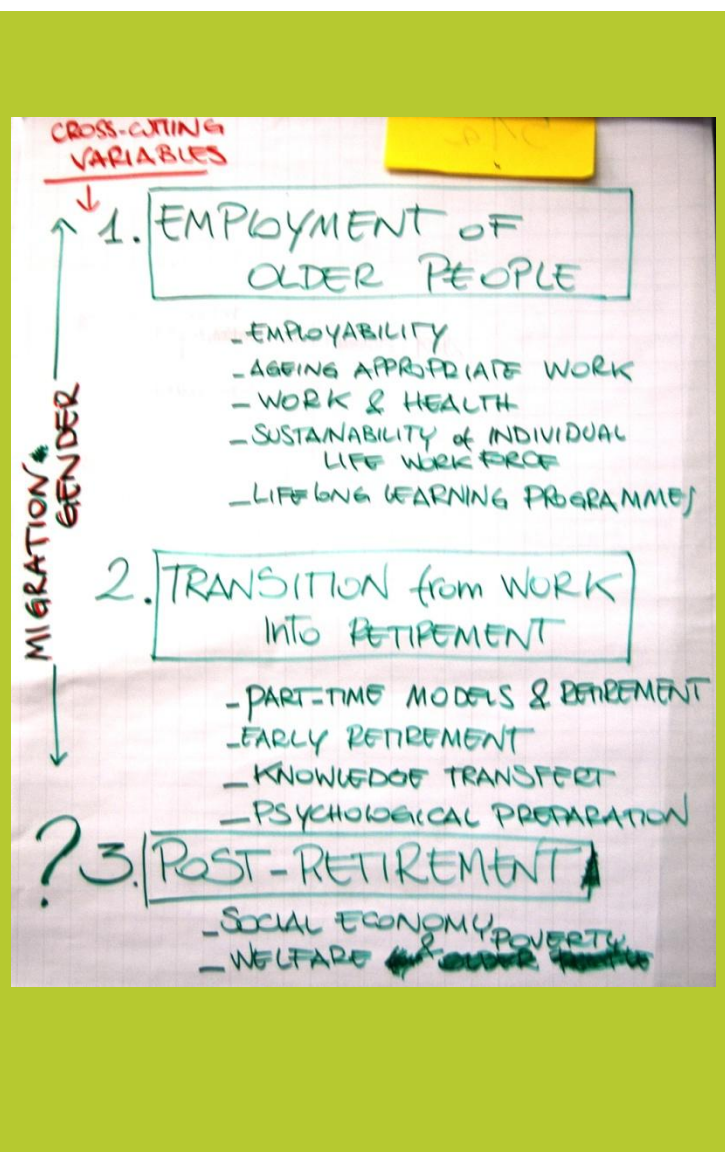 CROSS-CUTTING
VARIABLES
1. EMPLOYMENT OF
OLDER PEOPLE
- EMPLOYABILITY
- AGEING APPROPRIATE WORK
- WORK & HEALTH
- SUSTAINABILITY of INDIVIDUAL
LIFE WORK FORCE
- LIFELONG LEARNING PROGRAMMES
MIGRATION
GENDER
2. TRANSITION from WORK
INTO RETIREMENT
- PART-TIME MODELS & RETIREMENT
- EARLY RETIREMENT
- KNOWLEDGE TRANSFERT
- PSYCHOLOGICAL PREPARATION
? 3. POST-RETIREMENT
- SOCIAL ECONOMY
- WELFARE & POVERTY